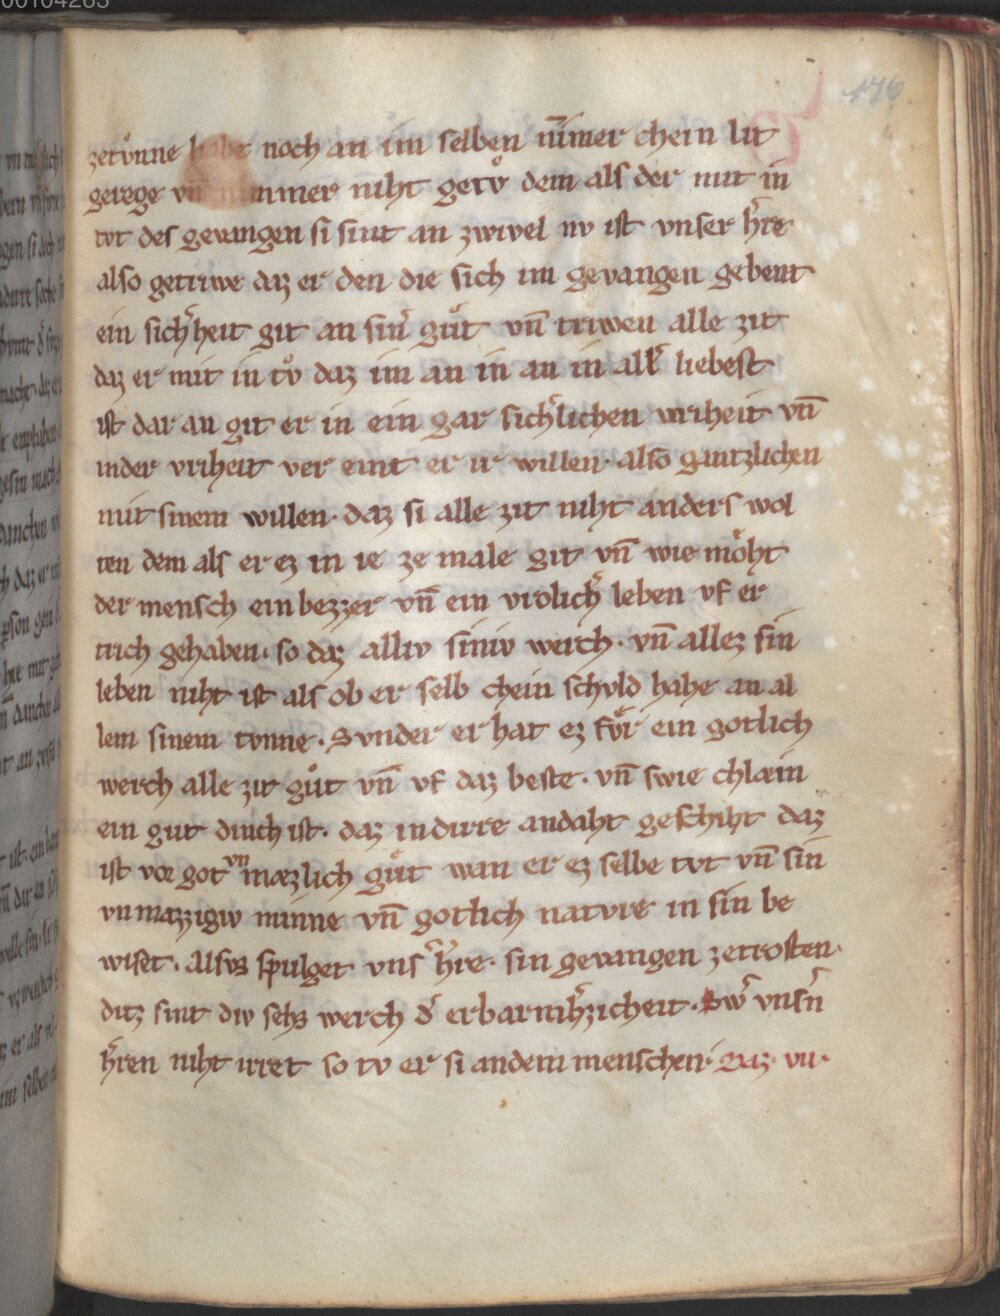 00104263
176
zetv̊nne habe noch an im selben nīmer chein lit
gerege vn̄ nimmer niht getv̊ dem als der mit in
tvt des gevangen si sint an zwivel nv ist vnser hr̄e
also getriwe daz er den die sich im gevangen gebent
ein sich̓heit git an sin̓ gůt vn̄ triwen alle zit
daz er mit in tv̊ daz im an in an in all̓ liebest
ist dar an git er in ein gar sich̓lichen vriheit vn̄
inder vriheit ver eint er ir willen· also gantzlichen
mit sinem willen· daz si alle zit niht anders wol
ten dem als er ez in ie ze male git vn̄ wie mo̊ht
der mensch ein bezzer vn̄ ein vrolich̓ leben vf er
trich gehaben· so daz alliv siniv werch· vn̄ allez sin
leben niht ist als ob er selb chein schvld habe an al
lem sinem tvnne· Svnder er hat ez fv̊r ein gotlich
werch alle zit gůt vn̄ vf daz beste· vn̄ swie chlæin
ein gut dinch ist· daz in dirre andaht geschiht daz
ist vor got vn mæzlich gůt wan er ez selbe tvt vn̄ sin
vnmazzigiv minne vn̄ gotlich natvre in sin be
wiset· alsvs spulget vns̓ hr̄e· sin gevangen zetrosten·
ditz sint div sehs werch d̓ erbarmh̓zicheit· Sw̓ vns̓n
hr̄en niht irret so tv er si andem menschen· Daz· vii·